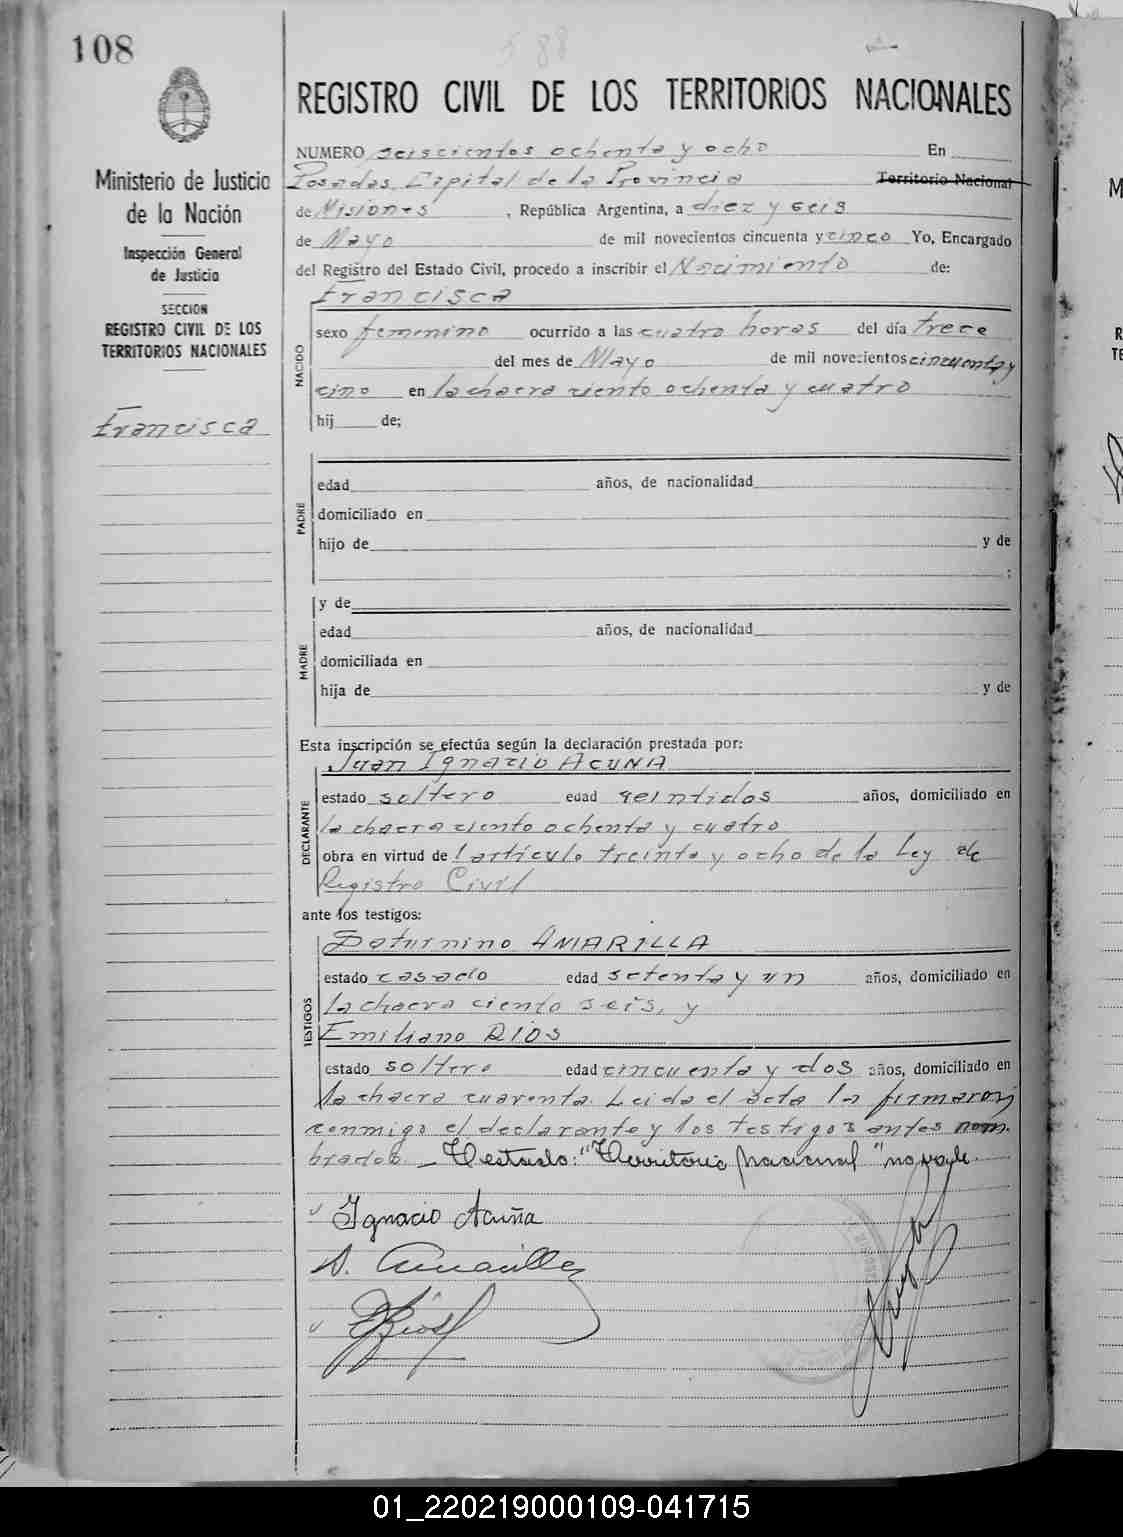 108
588
REGISTRO CIVIL DE LOS TERRITORIOS NACIONALES
Ministerio de Justicia
de la Nación
Inspección General
de Justicia
SECCION
REGISTRO CIVIL DE LOS
TERRITORIOS NACIONALES
Francisca
NUMERO seiscientos ochenta y ocho En
Posadas, Capital de la Provincia Territorio Nacional
de Misiones, República Argentina, a diez y seis
de Mayo de mil novecientos cincuenta y cinco Yo, Encargado
del Registro del Estado Civil, procedo a inscribir el Nacimiento de:
Francisca
NACIDO
sexo femenino ocurrido a las cuatro horas del día trece
del mes de Mayo de mil novecientos cincuenta y
cinco en la chacra ciento ochenta y cuatro
hij de;
PADRE
edad años, de nacionalidad
domiciliado en
hijo de y de
;
MADRE
y de
edad años, de nacionalidad
domiciliada en
hija de y de
Esta inscripción se efectúa según la declaración prestada por:
Juan Ignacio ACUÑA
DECLARANTE
estado soltero edad veintidos años, domiciliado en
la chacra ciento ochenta y cuatro
obra en virtud de l artículo treinta y ocho de la Ley de
Registro Civil
ante los testigos:
TESTIGOS
Saturnino AMARILLA
estado casado edad setenta y un años, domiciliado en
la chacra ciento seis, y
Emiliano RIOS
estado soltero edad cincuenta y dos años, domiciliado en
la chacra cuarenta. Leida el acta la firmaron
conmigo el declarante y los testigos antes nom-
brados - Testado: "Territorio Nacional" no vale.
Ignacio Acuña
S. Amarilla
E Rios
01_220219000109-041715